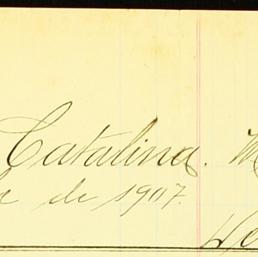 Catalina. M
de 1907.